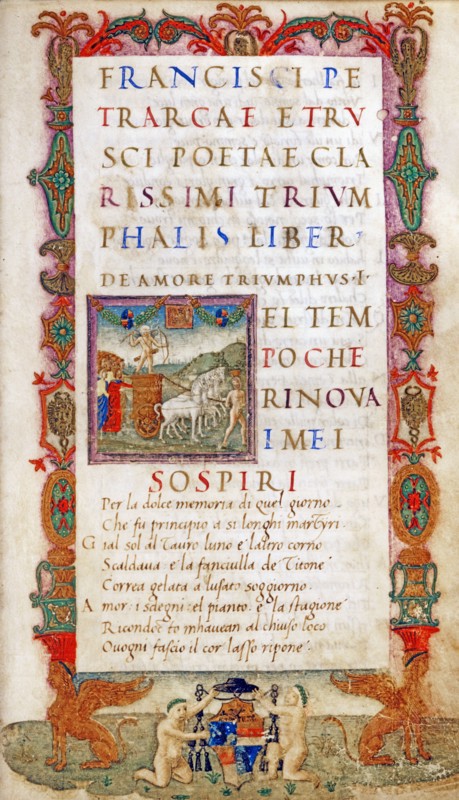 FRANCISCI PE
TRARCAE ETRV
SCI POETAE CLA
RISSIMI TRIVM
PHALIS LIBER·
DE AMORE TRIVMPHVS·I·
EL TEM
PO CHE
RINOVA
I MEI
SOSPIRI
Per la dolce memoria di quel giorno
Che fu principio a si longhi martyri·
G ial sol al Tauro luno e laltro corno
Scaldaua e la fanciulla de Titone
Correa gelata a lusato soggiorno·
A mor i sdegni el pianto e la stagione
Ricondotto mhauean al chiuso loco
Ouogni fascio il cor lasso ripone·